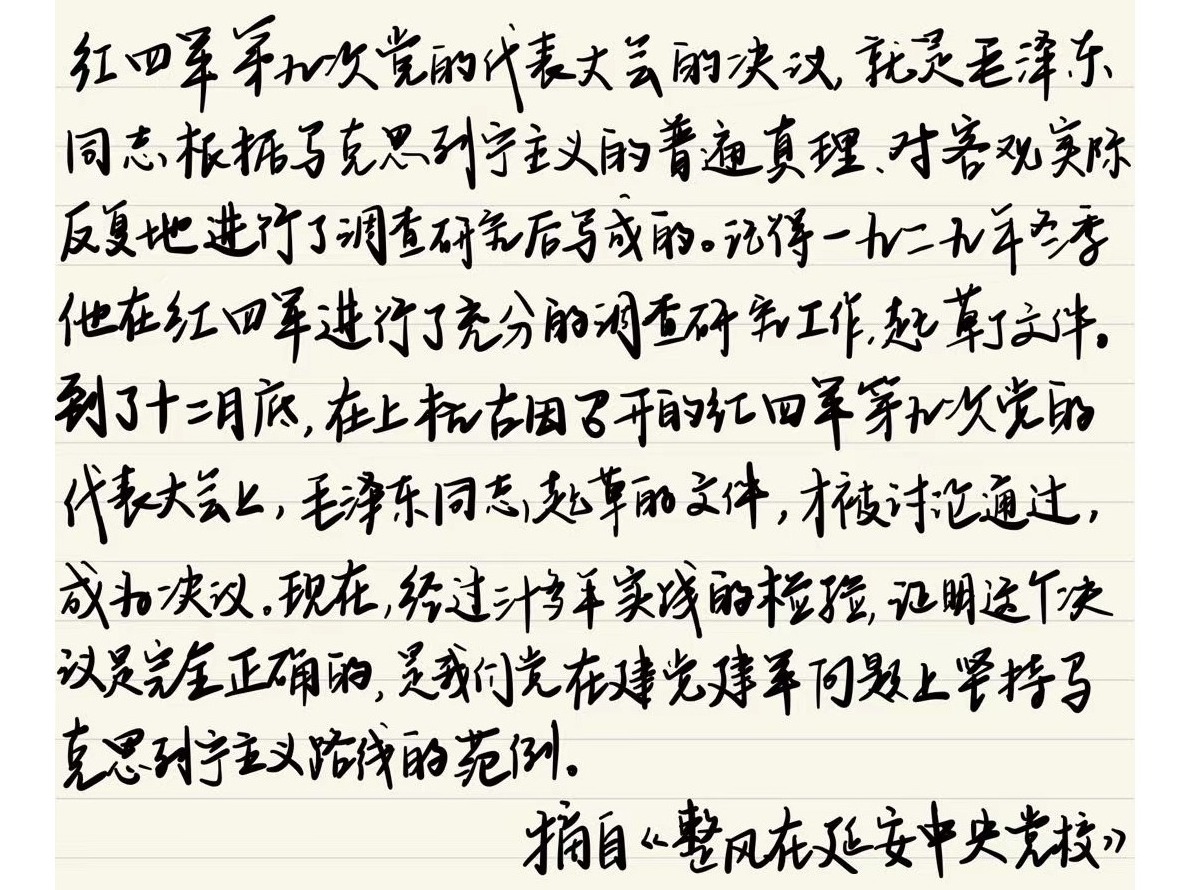 红四军第九次党的代表大会的决议,就是毛泽东
同志根据马克思列宁主义的普遍真理、对客观实际
反复地进行了调查研究后写成的。记得一九二九年冬季
他在红四军进行了充分的调查研究工作,起草了文件。
到了十二月底,在上杭古田召开的红四军第九次党的
代表大会上,毛泽东同志起草的文件,才被讨论通过,
成为决议。现在,经过三十多年实践的检验,证明这个决
议是完全正确的,是我们党在建党建军问题上坚持马
克思列宁主义路线的范例。
摘自《整风在延安中央党校》